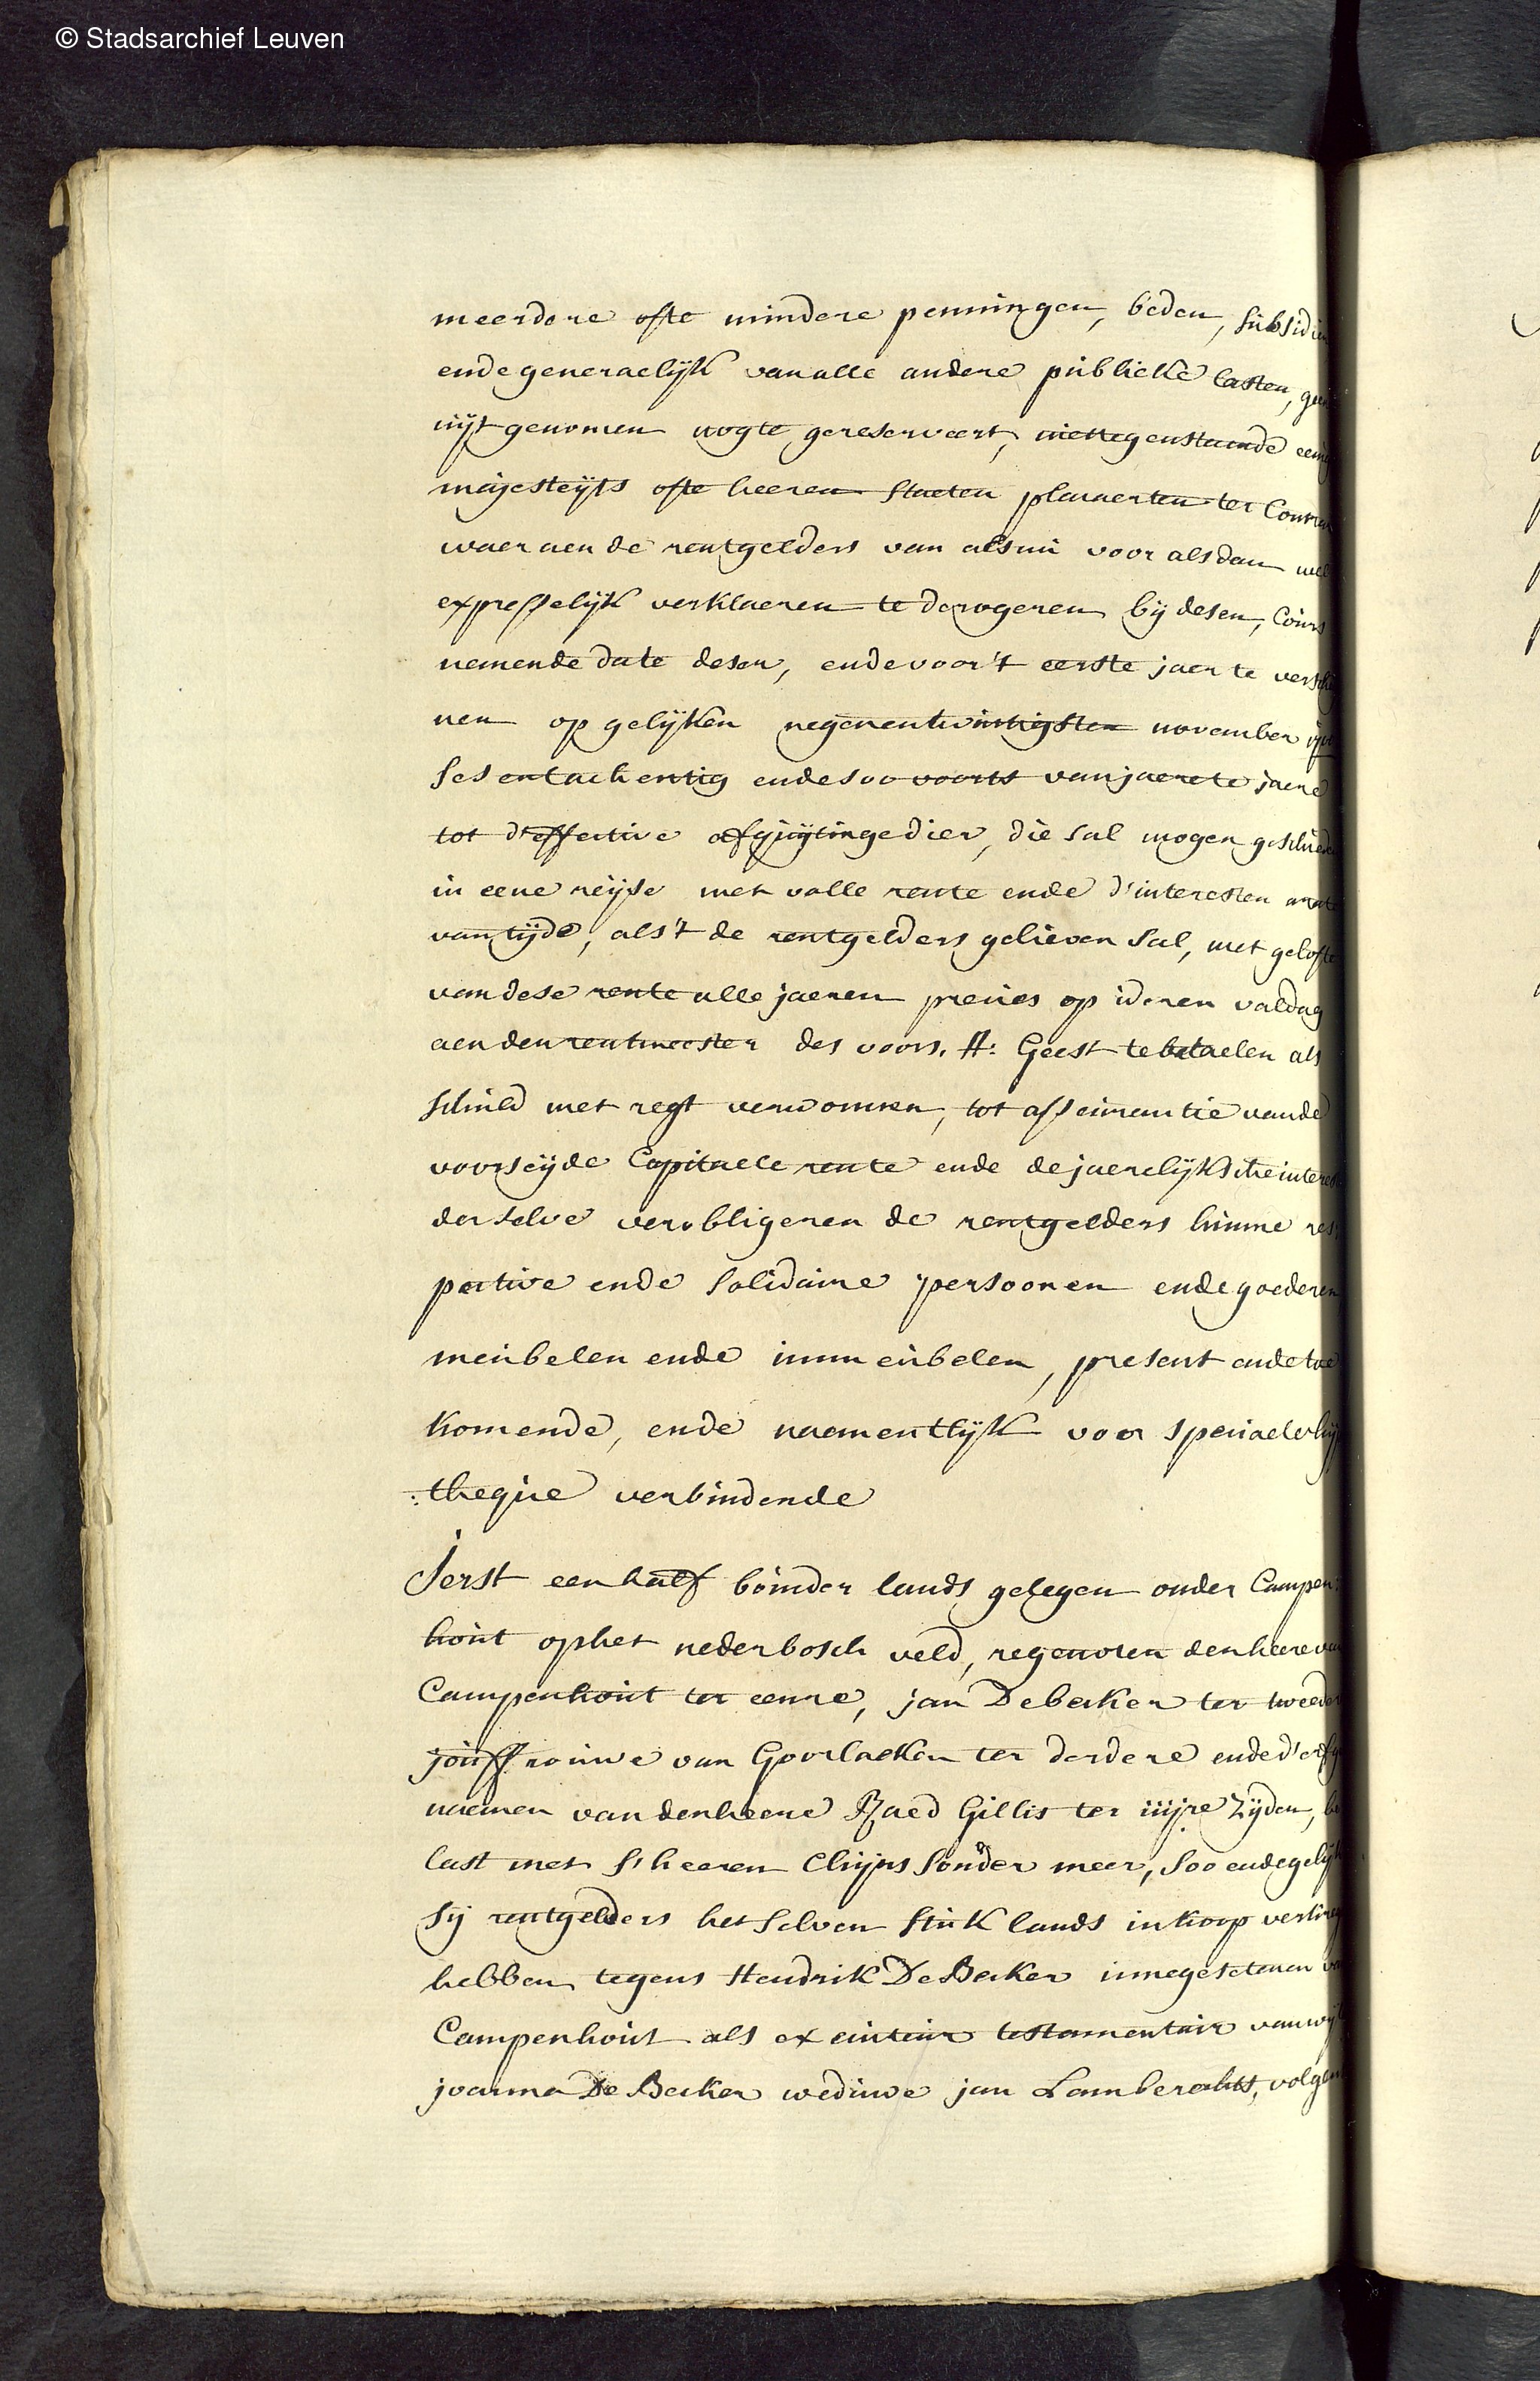 © Stadsarchief Leuven
meerdere ofte mindere penningen, beden, subsidien
ende generaelijk van alle andere publicke lasten, geen
uijtgenomen nogte gereserveert, niettegenstaende eenig
majesteijts ofte heeren staeten placaerten ter Contra
waer aen de rentgelders van als nu voor als dan wel
expresselijk verklaeren te derogeren bij desen, Cours
nemende date deser, ende voor 't eerste jaer te verschij
nen op gelijken negenentwintigsten november
ses entachentig ende soo voorts van jaere te jaere
tot d'effective afquijtinge dier, die sal mogen geschieden
in eene reijse met volle rente ende d'interesten
van tijde, als 't de rentgelders gelieven sal, met gelofte
van dese rente alle jaeren precies op ideren valdag
aen den rentmeester des voors. H: Geest te betaelen als
schuld met regt verwonnen, tot asseurantie van de
voorseijde Capitaele rente ende de jaerelijksche interesten
der selve verobligeren de rentgelders hunne res
pective ende solidaire persoonen ende goederen
meubelen ende immeubelen, present ende toe
komende, ende naementlijk voor speciaele hijp
:theque verbindende
Ierst een half bounder lands gelegen onder Campen:
hout op het nederbosch veld, regenoten den heere van
Campenhout ter eenre, jan De becker ter tweeder
jouffrouwe van Goorlaeken ter derdere ende d'erfge
naemen van den heere Raed Gillis ter iiijre zijden, be
last met s'heeren Chijns sonder meer, soo ende gelijk
sij rentgelders het selven stuk lands in koop verkregen
hebben tegens Hendrik De Becker innegesetenen van
Campenhout als executeur testamentair van wijl
joanna De Becker weduwe jan Lamberechts, volgens